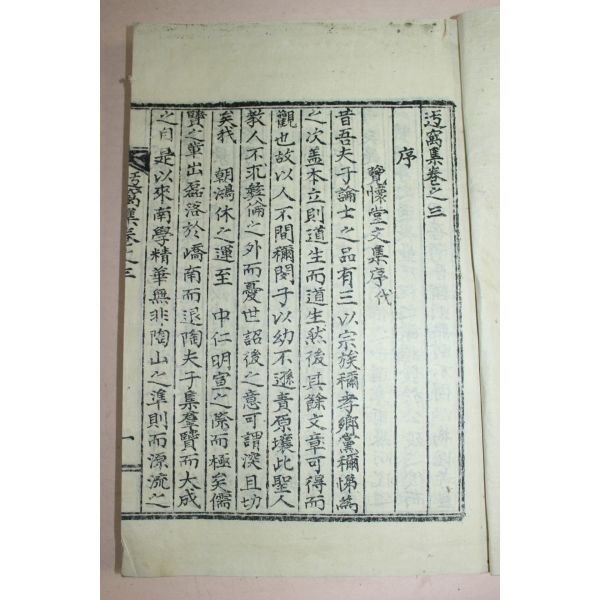 迃窩集卷之三
序
覽懷堂文集序代
昔吾夫子論士之品有三以宗族稱孝鄕黨稱悌爲
之次盖本立則道生而道生然後其餘文章可得而
觀也故以人不間稱閔子以幼不遜責原壤此聖人
敎人不求彛倫之外而憂世詔後之意可謂深且切
矣我 朝鴻休之運至 中仁明宣之際而極矣儒
賢之輩出磊落於嶠南而退陶夫子集羣賢而大成
之自是以來南學精華無非陶山之準則而源流之
窩集卷之三
一